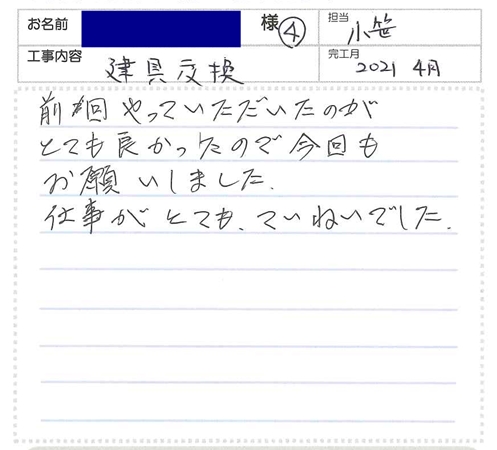 お名前 様④ 担当 小笹
工事内容 建具交換 完工月 2021 4月
前回やっていただいたのが
とても良かったので今回も
お願いしました.
仕事がとても、ていねいでした.